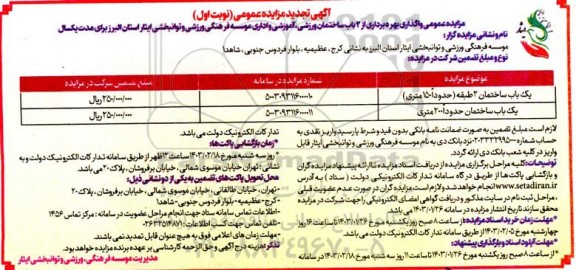 آگهی تجدید مزایده عمومی (نوبت اول)
مزایده عمومی واگذاری بهره برداری از ۲ باب ساختمان ورزشی، آموزشی و اداری موسسه فرهنگی ورزشی و توانبخشی ایثار استان البرز برای مدت یکسال
نام و نشانی مزایده گزار:
موسسه فرهنگی ورزشی و توانبخشی ایثار استان البرز به نشانی کرج، عظیمیه، بلوار فردوس جنوبی، شاهد۱
نوع و مبلغ تضمین شرکت در مزایده:
موضوع مزایده شماره مزایده در سامانه مبلغ تضمین شرکت در مزایده
یک باب ساختمان ۲ طبقه (حدوداً ۱۵۰ متری) ۵۰۰۳۰۹۳۱۱۶۰۰۰۰۱۰ ۲۵۰/۰۰۰/۰۰۰ ریال
یک باب ساختمان حدودا ۲۰۰ متری ۵۰۰۳۰۹۳۱۱۶۰۰۰۰۱۱ ۲۵۰/۰۰۰/۰۰۰ ریال
لازم است مبلغ تضمین به صورت ضمانت نامه بانکی بدون قید و شرط یا رسید واریز نقدی به
نزد بانک دی به نام موسسه فرهنگی ورزشی و توانبخشی ایثار قابل
واریز در کلیه شعب بانک دی ارائه گردد.
توضیحات: کلیه مراحل برگزاری مزایده از دریافت اسناد مزایده تا ارائه پیشنهاد مزایده گران
و بازگشایی پاکت ها از طریق درگاه سامانه تدارکات الکترونیکی دولت (ستاد) به آدرس
www.setadiran.ir انجام خواهد شد و لازم است مزایده گران در صورت عدم عضویت قبلی
، مراحل ثبت نام در سایت مذکور و دریافت گواهی امضای الکترونیکی را جهت شرکت در مزایده
محقق سازند تاریخ انتشار مزایده در سامانه
مهلت زمان خرید اسناد مزایده:
مهلت آپلود اسناد و بارگذاری پیشنهاد:
تدارکات الکترونیک دولت می باشد.
زمان بازگشایی پاکت ها:
روز سه شنبه مورخ ۱۴۰۳/۰۲/۱۸ ساعت ۱۳ ظهر از طریق سامانه تدارکات الکترونیک دولت به
نشانی: تهران خیابان طالقانی، خیابان موسوی شمالی، خیابان برفروشان، پلاک۲۰ می باشد.
محل تحویل پاکت های تضمین به یکی از دو نشانی ذیل:
-تهران، خیابان طالقانی، خیابان موسوی شمالی، خیابان برفروشان، پلاک۲۰
-کرج-عظیمیه-بلوار فردوس جنوبی-شاهد۱
-اطلاعات تماس سامانه ستاد جهت انجام مراحل عضویت در سامانه: مرکز تماس ۱۴۵۶
-مهلت زمان های اعلامی فوق به هیچ عنوان قابل تمدید نمی باشند.
تذکر: هزینه درج آگهی و حق الزحمه کارشناسی بر عهده برنده مزایده خواهد بود.
مدیریت موسسه فرهنگی، ورزشی و توانبخشی ایثار